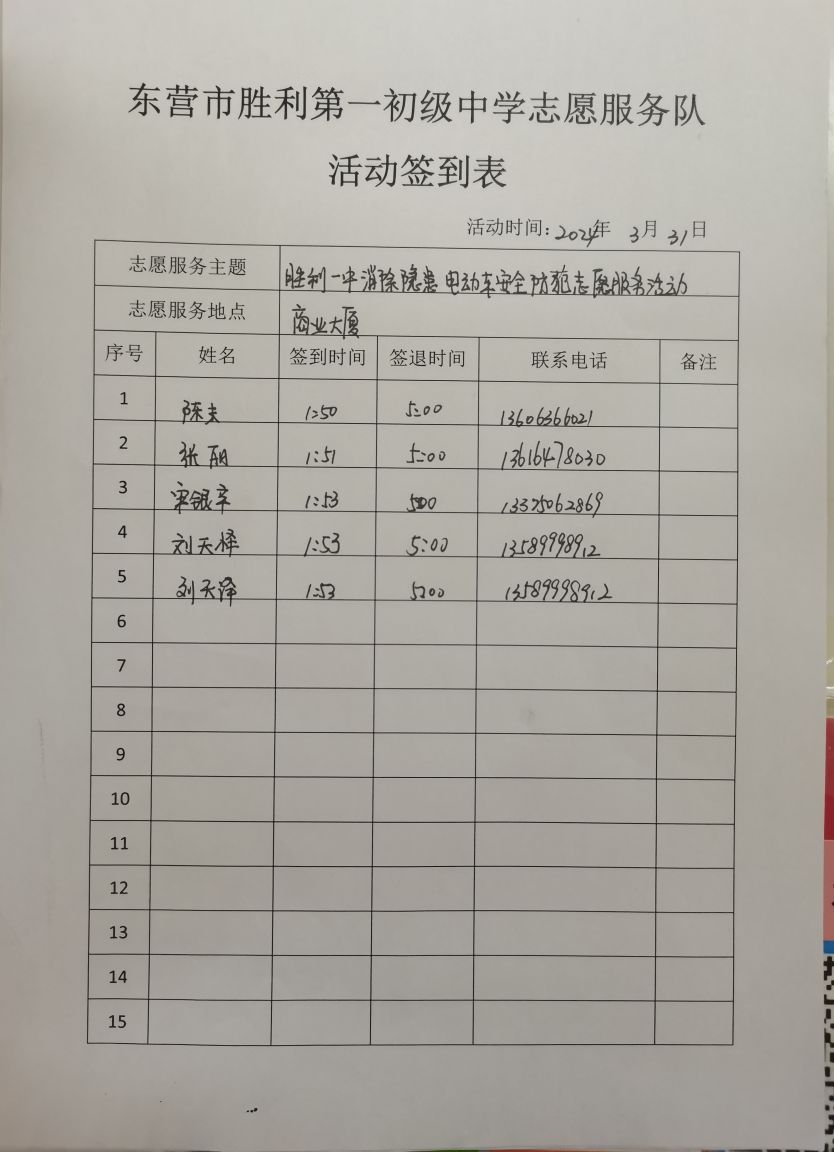 东营市胜利第一初级中学志愿服务队
活动签到表
活动时间：2024年 3月 31日
志愿服务主题 胜利一中消除隐患电动车安全防范志愿服务活动
志愿服务地点 商业大厦
序号 姓名 签到时间 签退时间 联系电话 备注
1 陈夫 1:50 5:00 13606366021
2 张丽 1:51 5:00 13616478030
3 宋银 1:53 5:00 13375062869
4 刘天怿 1:53 5:00 13589998912
5 刘天泽 1:53 5:00 13589998912
6
7
8
9
10
11
12
13
14
15